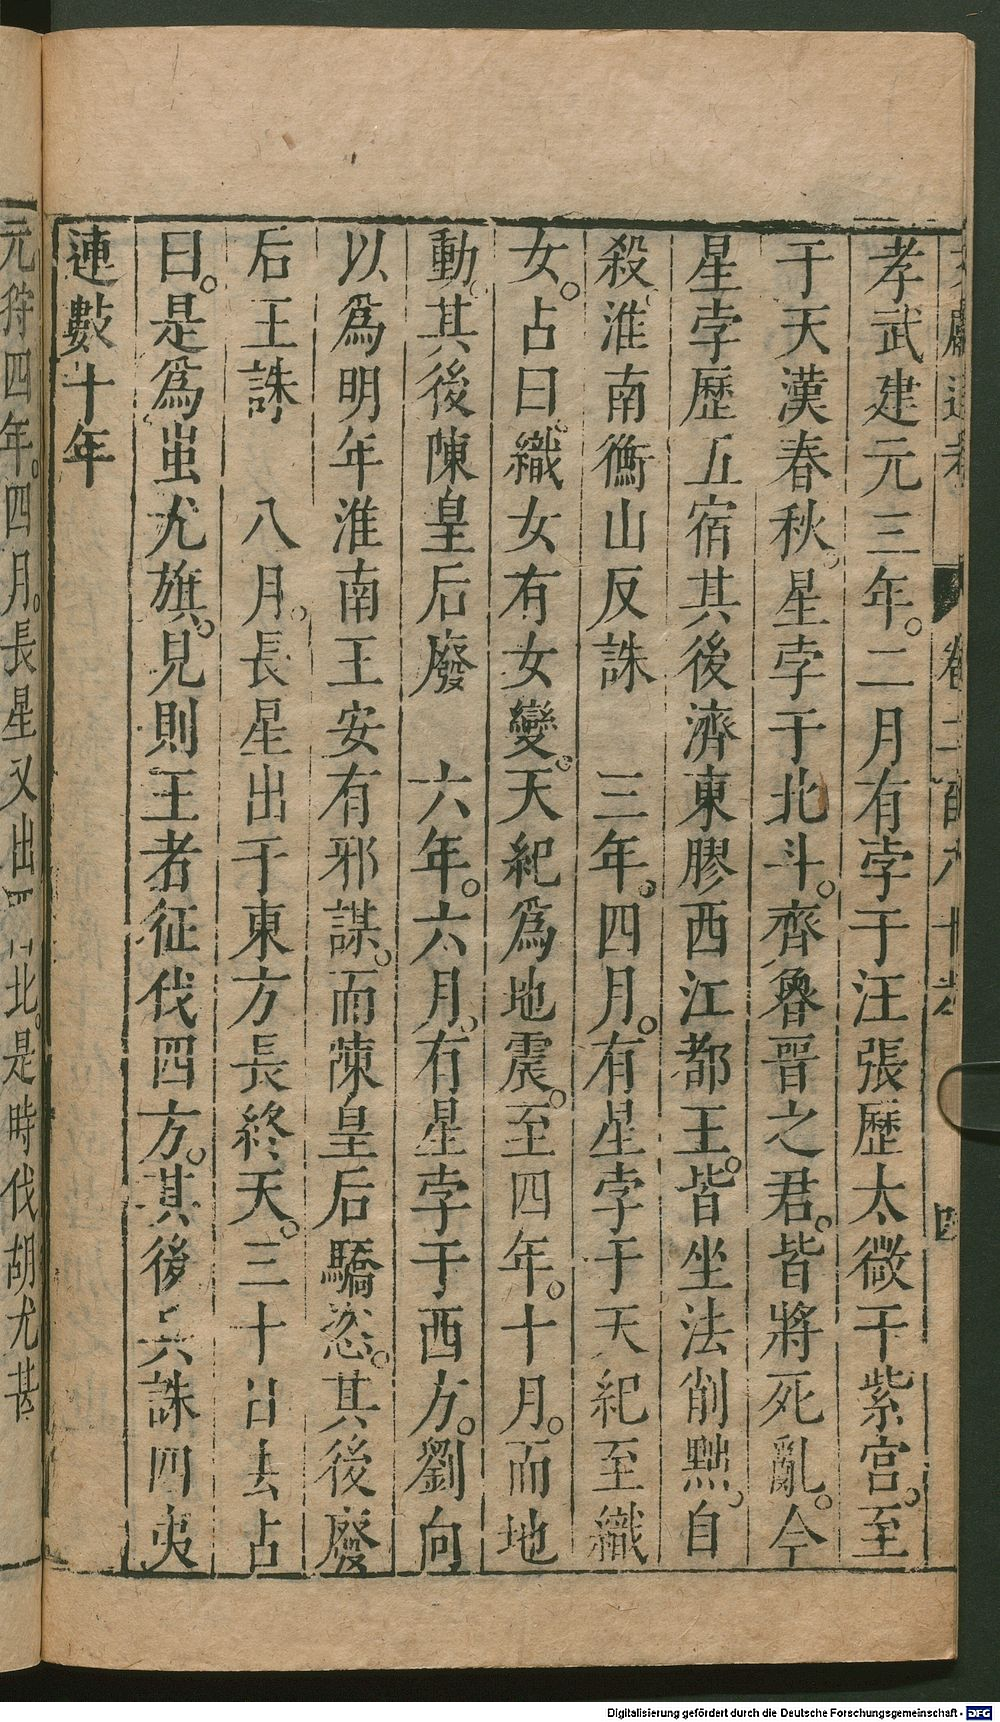 孝武建元三年。二月有孛于汪張歷太微干紫宮。至
于天漢春秋。星孛于北斗。齊魯晉之君。皆將死亂。今
星孛歷五宿其後濟東膠西江都王。皆坐法削黜。自
殺淮南衡山反誅　三年。四月。有星孛于天紀至織
女。占曰。織女有女變。天紀爲地震。至四年。十月。而地
動。其後陳皇后廢　六年。六月。有星孛于西方。劉向
以爲明年淮南王安有邪謀。而陳皇后驕恣。其後廢
后王誅　八月。長星出于東方長終天。三十日去占
曰。是爲蚩尤旗。見則王者征伐四方。其後兵誅四夷
連數十年
元狩四年。四月。長星又出西北。是時伐胡尤甚
Digitalisierung gefördert durch die Deutsche Forschungsgemeinschaft - DFG